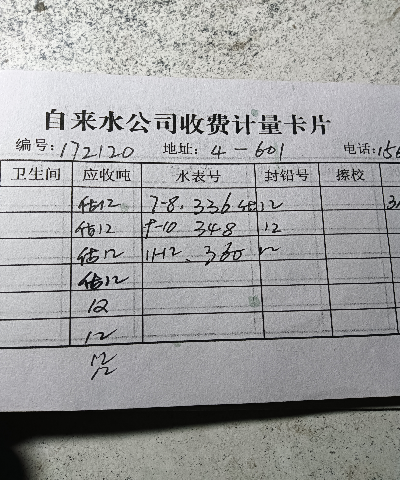 自来水公司收费计量卡片
编号: 172120 地址: 4-601 电话: 156
卫生间 应收吨 水表号 封铅号 擦校
估12 7-8. 336 12
估12 9-10 348 12
估12 11-12. 360 12
估12
12
12
12